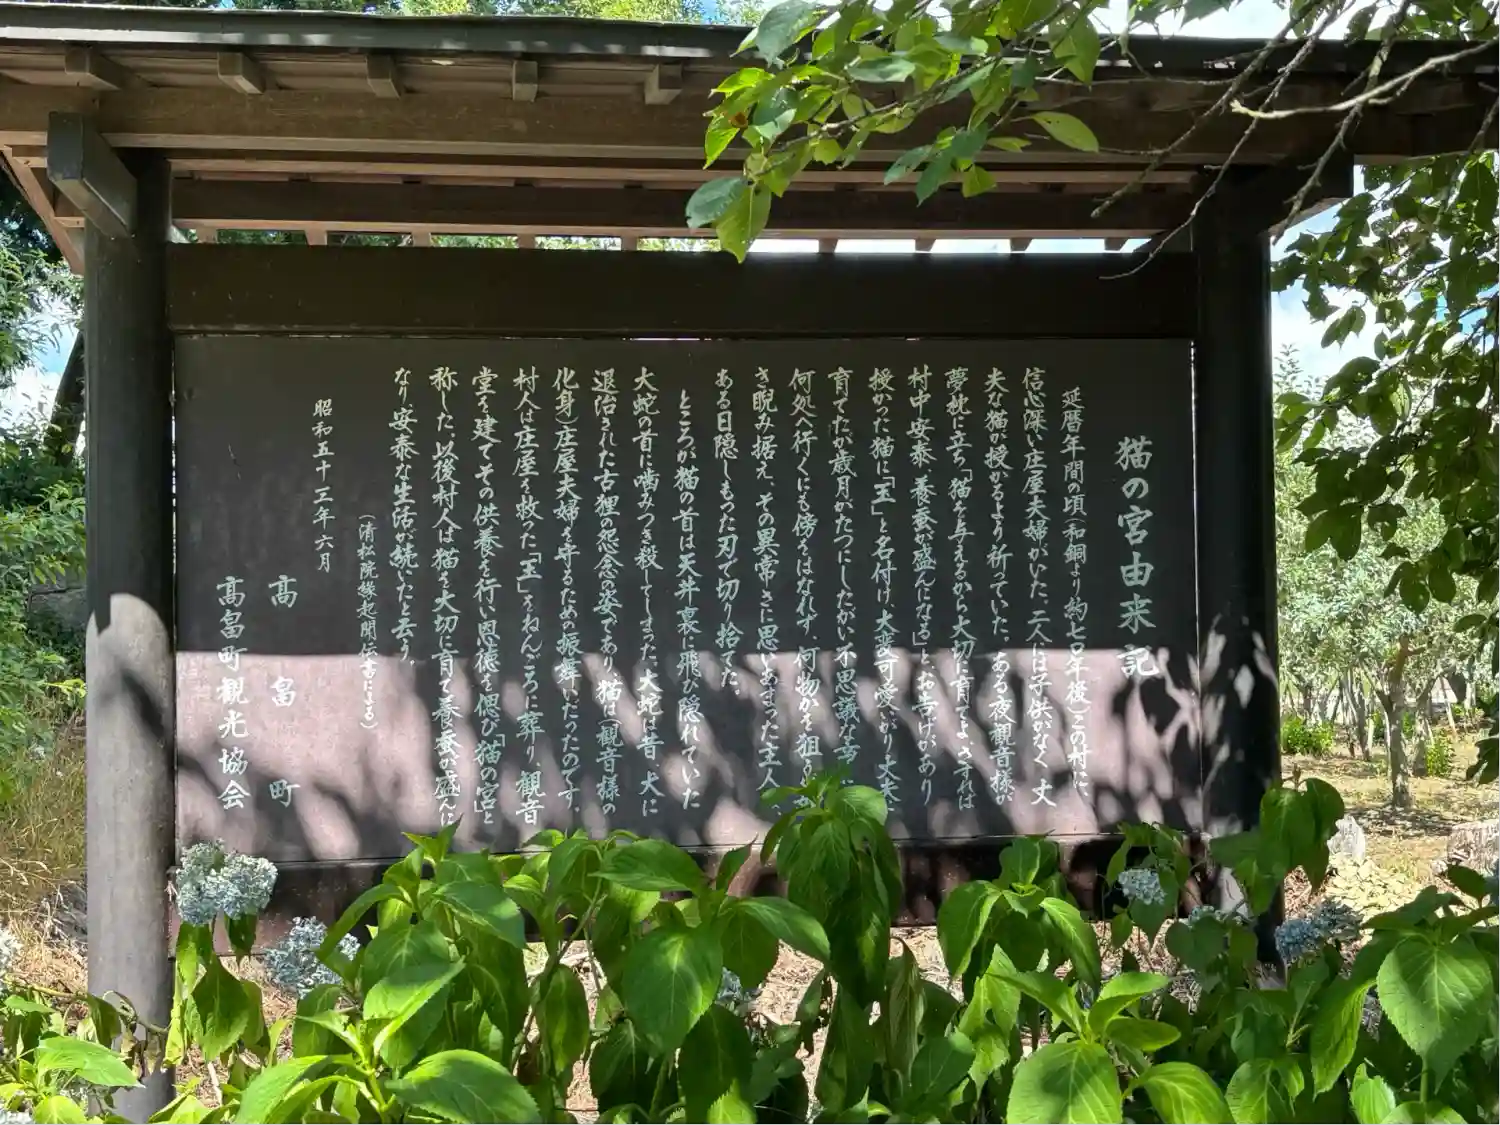 猫の宮由来記
延暦年間の頃(和銅より約七〇年後)この村に、
信心深い庄屋夫婦がいた。二人には子供がなく丈
夫な猫が授かるよう祈っていた。ある夜観音様が
夢枕に立ち「猫を与えるから大切に育てよ。さすれば
村中安泰、養蚕が盛んになる」とお告げがあり
授かった猫に「玉」と名付け、大変可愛がり大夫
育てたが歳月がたつにしたがい不思議な
何処へ行くにも傍をはなれず、何物かを狙
さ睨み据え、その異常さに思いあまった主人
ある日隠しもった刃で切り捨てた。
ところが猫の首は天井裏に飛び隠れていた
大蛇の首に噛みつき殺してしまった。大蛇は昔、犬に
退治された古狸の怨念の姿であり猫は(観音様の
化身)庄屋夫婦を守るための振舞いだったのです。
村人は庄屋を救った「玉」をねんごろに葬り、観音
堂を建てその供養を行い恩徳を偲び「猫の宮」と
称した。以後村人は猫を大切に育て養蚕が盛んに
なり安泰な生活が続いたと云う。
(清松院縁起聞伝書による)
昭和五十三年六月
高畠町
高畠町観光協会